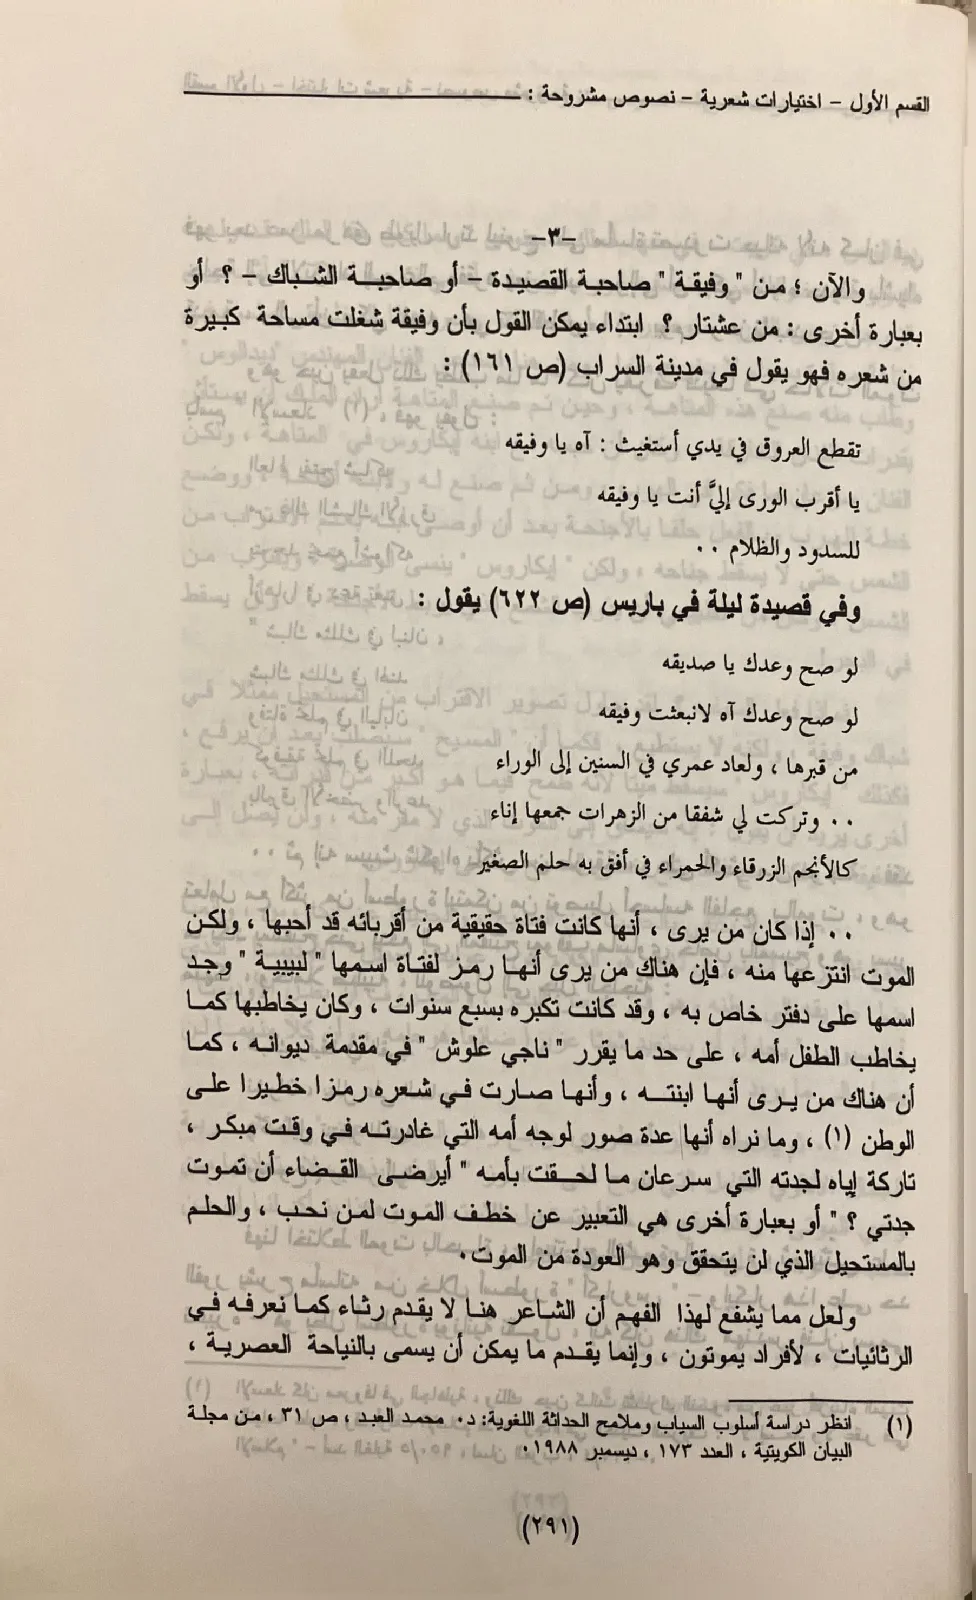 القسم الأول – اختيارات شعرية – نصوص مشروحة :
–٣–
والآن ؛ من " وفيقة " صاحبة القصيدة – أو صاحبة الشباك – ؟ أو
بعبارة أخرى : من عشتار ؟ ابتداء يمكن القول بأن وفيقة شغلت مساحة كبيرة
من شعره فهو يقول في مدينة السراب (ص ١٦١) :
تقطع العروق في يدي أستغيث : آه يا وفيقه
يا أقرب الورى إليَّ أنت يا وفيقه
للسدود والظلام ٠٠
وفي قصيدة ليلة في باريس (ص ٦٢٢) يقول :
لو صح وعدك يا صديقه
لو صح وعدك آه لانبعثت وفيقه
من قبرها ، ولعاد عمري في السنين إلى الوراء
٠٠ وتركت لي شفقا من الزهرات جمعها إناء
كالأنجم الزرقاء والحمراء في أفق به حلم الصغير
٠٠ إذا كان من يرى ، أنها كانت فتاة حقيقية من أقربائه قد أحبها ، ولكن
الموت انتزعها منه ، فإن هناك من يرى أنها رمز لفتاة اسمها " لبيبية " وجد
اسمها على دفتر خاص به ، وقد كانت تكبره بسبع سنوات ، وكان يخاطبها كما
يخاطب الطفل أمه ، على حد ما يقرر " ناجي علوش " في مقدمة ديوانه ، كما
أن هناك من يرى أنها ابنته ، وأنها صارت في شعره رمزا خطيرا على
الوطن (١) ، وما نراه أنها عدة صور لوجه أمه التي غادرته في وقت مبكر ،
تاركة إياه لجدته التي سرعان ما لحقت بأمه " أيرضى القضاء أن تموت
جدتي ؟ " أو بعبارة أخرى هي التعبير عن خطف الموت لمن نحب ، والحلم
بالمستحيل الذي لن يتحقق وهو العودة من الموت٠
ولعل مما يشفع لهذا الفهم أن الشاعر هنا لا يقدم رثاء كما نعرفه في
الرثائيات ، لأفراد يموتون ، وإنما يقدم ما يمكن أن يسمى بالنياحة العصرية ،
(١) انظر دراسة أسلوب السياب وملامح الحداثة اللغوية: د٠ محمد العبد ، ص ٣١ ، من مجلة
البيان الكويتية ، العدد ١٧٣ ، ديسمبر ١٩٨٨٠
(٢٩١)